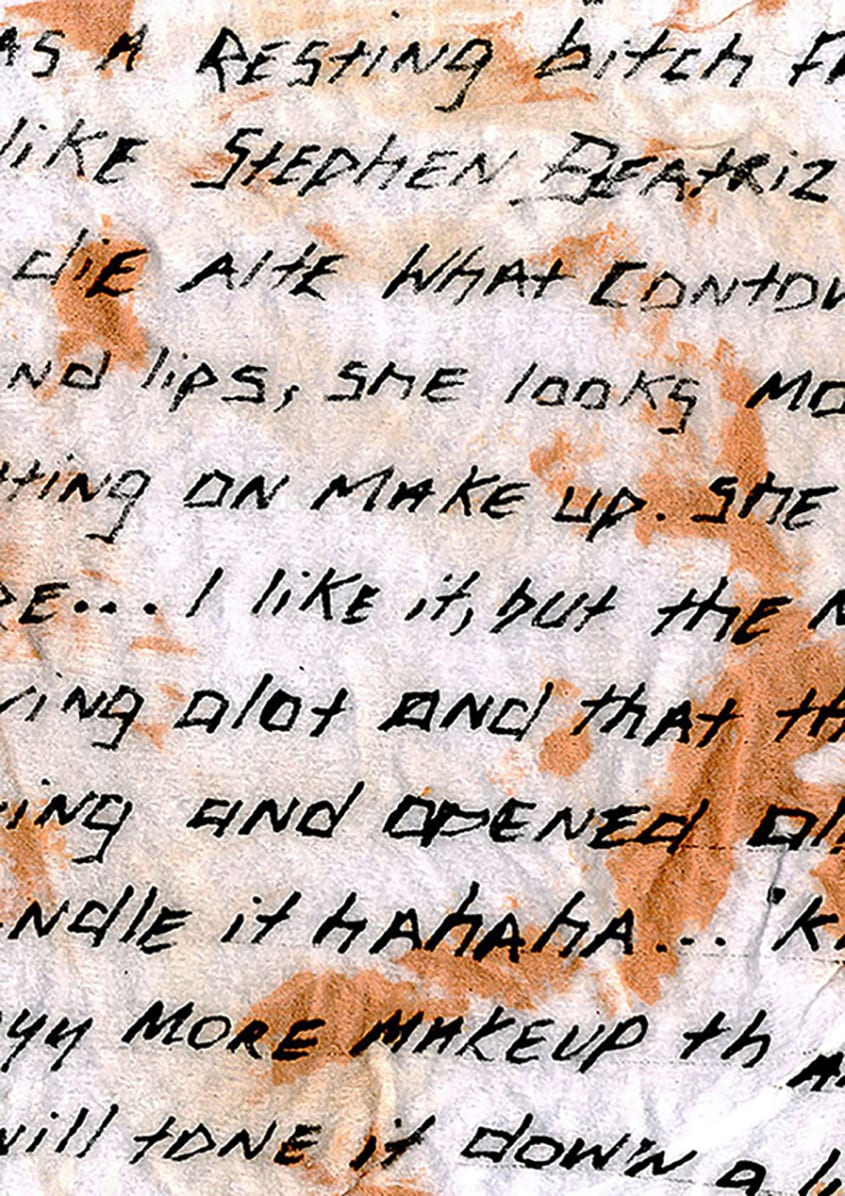 AS A RESting bitch FA
likE StEphEN BEAtRiz
diE AltE WhAt CONtOu
Nd lips, ShE looks MO
tting ON MAKE up. ShE
RE... I likE it, but thE N
ving alot aNd thAt th
ing aNd OpENEd al
NdlE it hAhAhA... 'K
yy MORE MAKEUP th A
will tONE it dowN a li